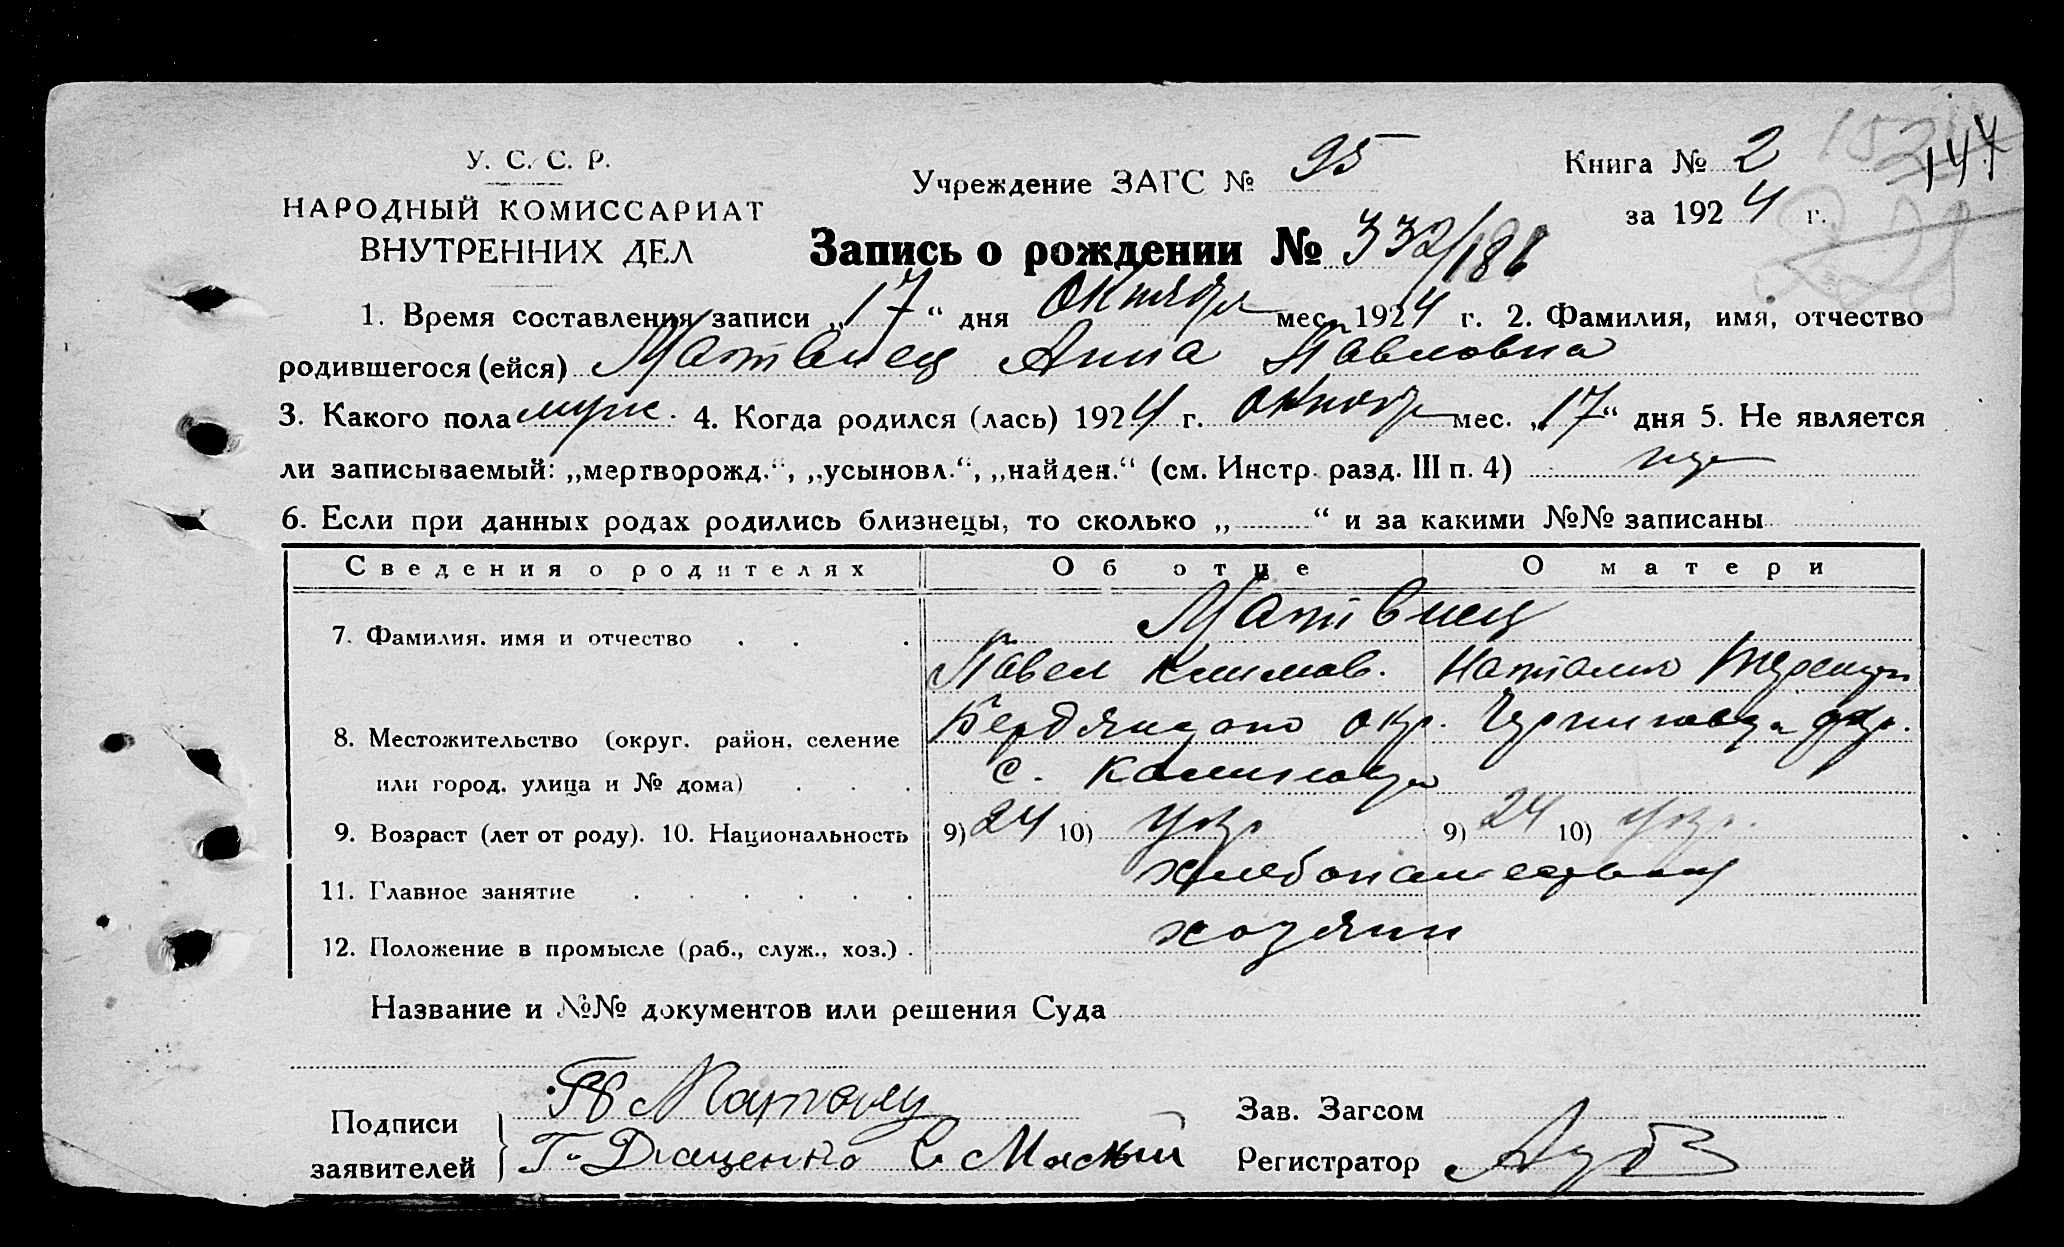 У. С. С. Р.
НАРОДНЫЙ КОМИССАРИАТ
ВНУТРЕННИХ ДЕЛ
Учреждение ЗАГС № 95
Книга № 2
147
за 1924 г.
Запись о рождении № 332/186
1. Время составления записи „17“ дня Октября мес. 1924 г. 2. Фамилия, имя, отчество
родившегося (ейся) Матвиец Анна Павловна
3. Какого пола муж. 4. Когда родился (лась) 1924 г. октября мес. „17“ дня 5. Не является
ли записываемый: „мертворожд.“, „усыновл.“, „найден.“ (см. Инстр. разд. III п. 4)
6. Если при данных родах родились близнецы, то сколько „ “ и за какими №№ записаны
Сведения о родителях Об отце О матери
Матвиец
7. Фамилия, имя и отчество
Павел Климов. Наталия
Бердянского окр. Черниговск. р.
8. Местожительство (округ, район, селение
или город, улица и № дома)
с.
9. Возраст (лет от роду). 10. Национальность 9) 24 10) укр. 9) 24 10) укр.
11. Главное занятие хлебопашество
12. Положение в промысле (раб., служ., хоз.) хозяин
Название и №№ документов или решения Суда
Подписи
заявителей
П Матвиец
Г. Дяценко С.
Зав. Загсом
Регистратор